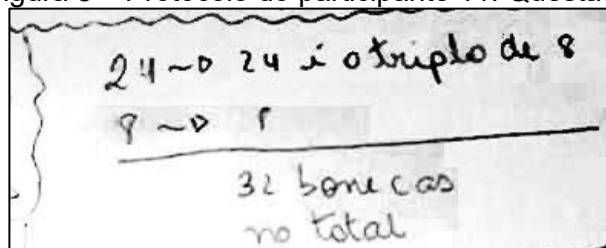 24 ~> 24 é o triplo de 8
8 ~>
32 bonecas
no total